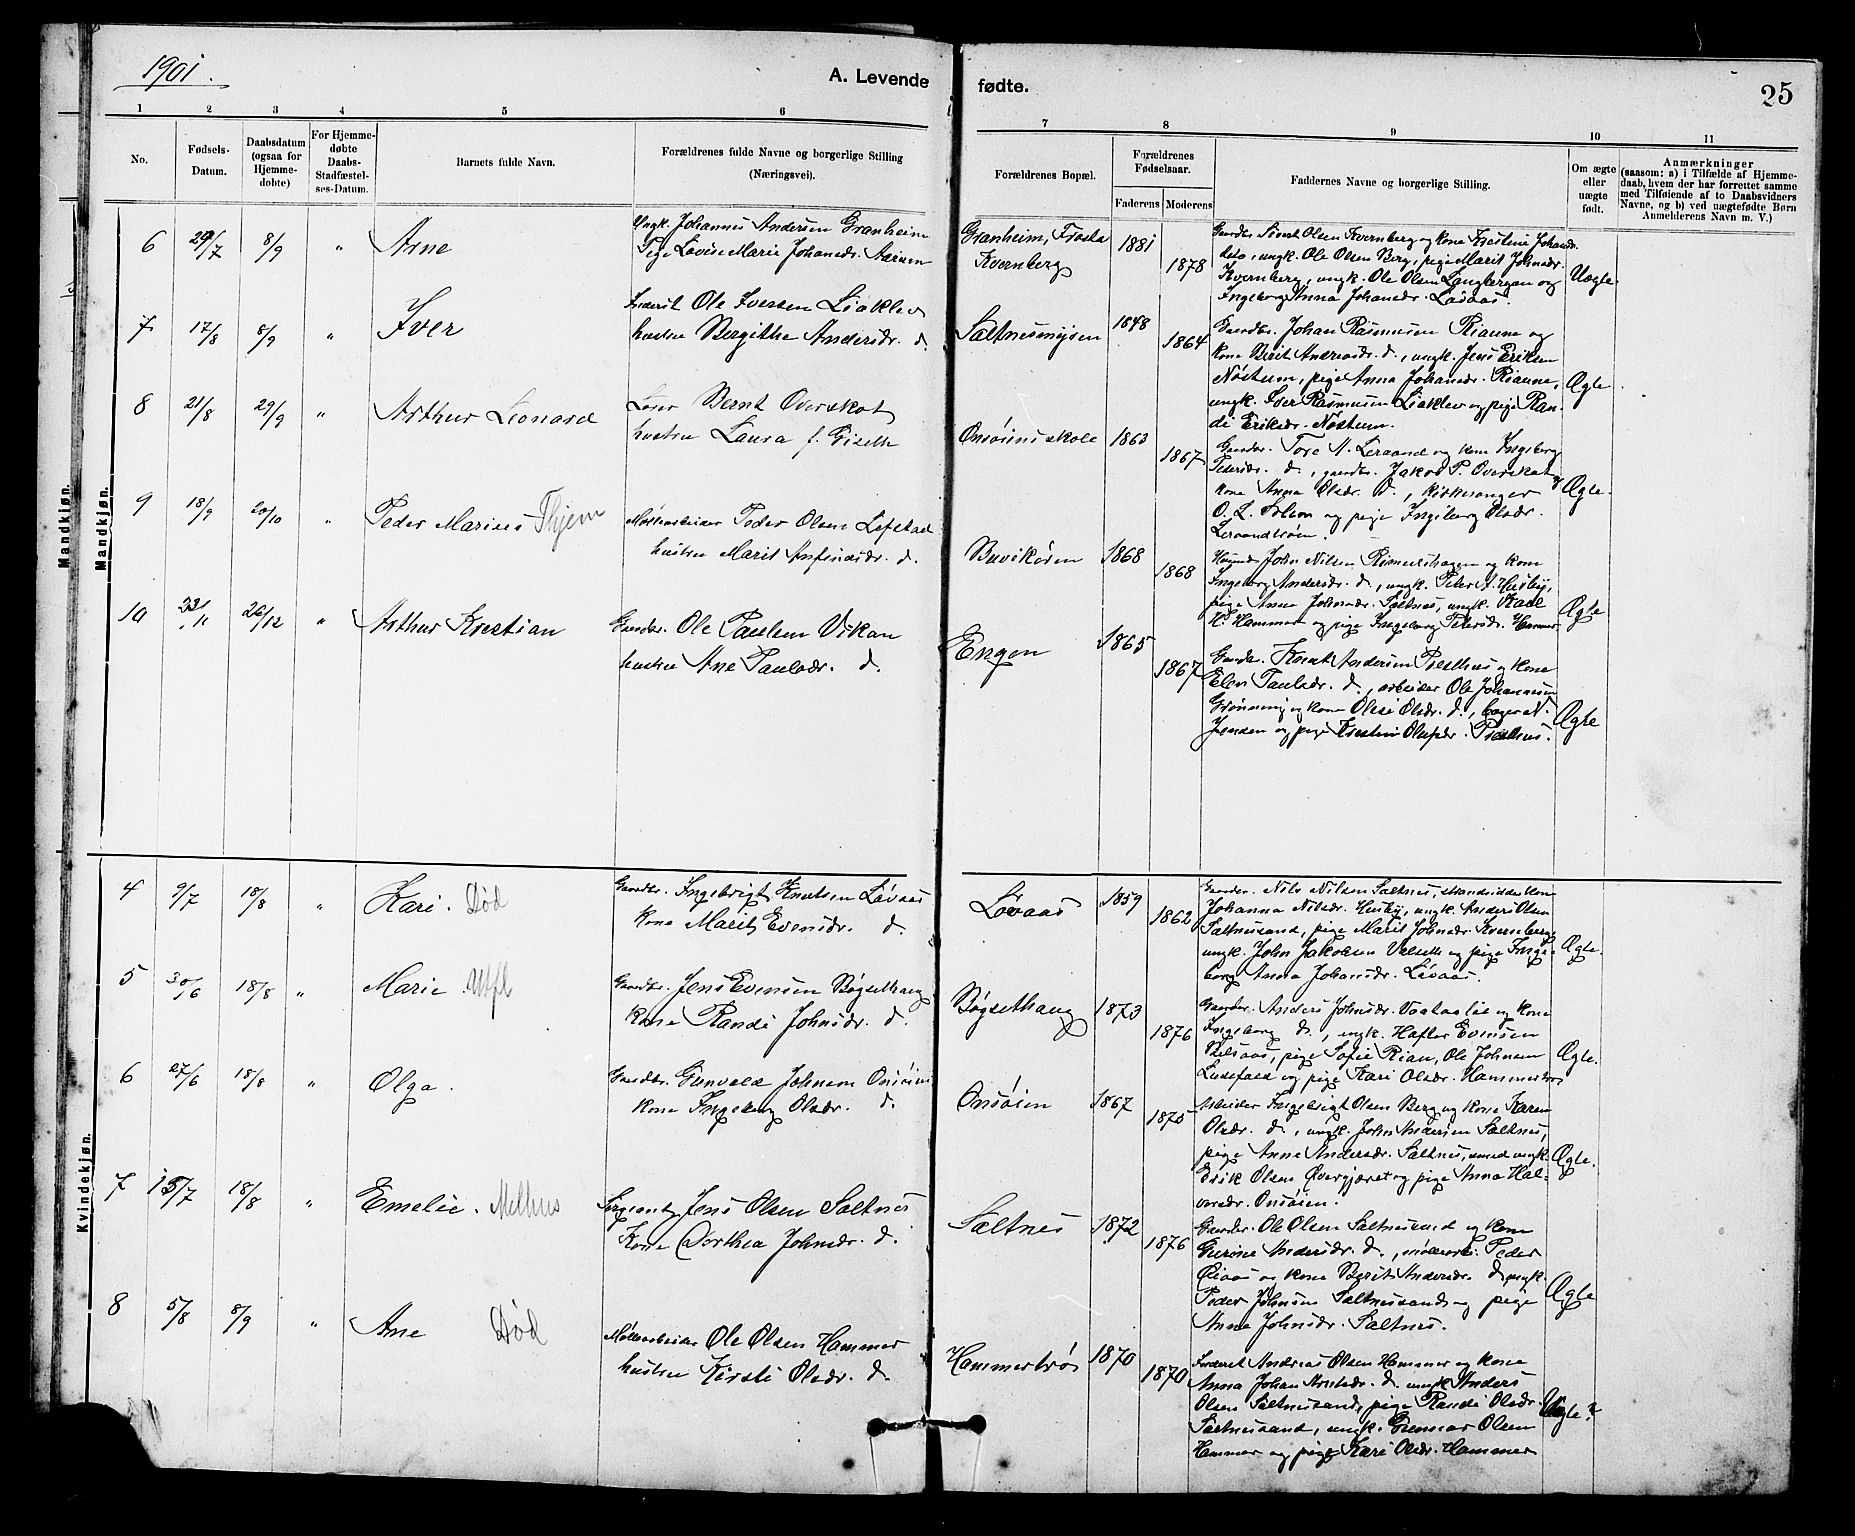 1901.
A. Levende
fødte.
25
1 2 3 4 5 6 7 8 9 10 11
No.
Fødsels-
Datum.
Daabsdatum
(ogsaa for
Hjemme-
døbte)
For Hjemme-
døbte
Daabs-
Stadfæstel-
ses-Datum.
Barnets fulde Navn.
Forældrenes fulde Navne og borgerlige Stilling
(Næringsvei).
Forældrenes Bopæl.
Forældrenes
Fødselsaar.
Faderens Moderens
Faddernes Navne og borgerlige Stilling.
Om ægte
eller
uægte
født.
Anmærkninger
(saasom: a) i Tilfælde af Hjemme-
daab, hvem der har forrettet samme
med Tilføiende af to Daabsvidners
Navne, og b) ved uægtefødte Børn
Anmelderens Navn m. V.)
Mandkjøn.
Mandkjøn.
6 /7 8/9 " Arne
Ungk. Johannes Andersen Granheim
Pige Lovise Marie Johansdr.
Granheim, Frosta
Kvernberg
1881
1878
Gaardbr. Sivert Olsen Kvernberg og kone Kristine Johansdr.
ungk. Ole Olsen Berg, pige Marit Johnsdr.
Kvernberg, ungk. Ole Olsen Langbergan og
Ingeborg Anna Johansdr. Løvaas.
Uægte
7 17/8 8/9 " Iver
Inderst Ole Iversen Liaklev
hustru Bergithe Andersdr. d.
Saltnesmyren
1848
1864
Gaardbr. Johan Rasmusen Rianne og
kone Berit Andreasdr. d., ungk. Jens Eriksen
Nøstum, pige Anna Johansdr. Rianne,
ungk. Iver Rasmusen Liaklev og pige Ran-
di Eriksdr. Nøstum.
Ægte
8 21/8 29/9 " Arthur Leonard
Lærer Bernt Overskot
hustru Laura f. Giseth
Onsøiens skole
1863
1867
Gaardbr. Tore A. Leraand og kone Ingeborg
Pedersdr. d., gaardbr. Jakob P. Overskot og
kone Anna Olsdr. d., kirkesanger
O. L. Solem og pige Ingeborg Olsdr.
Leraandtrøen.
Ægte.
9 18/9 20/10 " Peder Marines Thjem
Møllearbeider Peder Olsen Lefstad
hustru Marit Arfinsdr. d.
Buvikøren
1868
1868
John Nilsen Rimmershagen og kone
Ingeborg Andersdr. d., ungk. Peter A. Husby,
pige Anna Johnsdr. Saltnes, ungk. Karl
H. Hammer og pige Ingeborg Petersdr. Hammer
Ægte
10 /11 26/12 " Arthur Kristian
Gaardbr. Ole Paulsen Vikan
hustru Ane Paulsdr. d.
Engen
1865
1867
Gaardbr. Knut Andersen Presthus og kone
Elen Paulsdr. d., arbeider Ole Johannesen
Grønning og kone Olise Olsdr. d., bager N.
Jensen og pige Kristine Olufsdr. Presthus.
Ægte
Kvindekjøn.
4 9/7 18/8 " Kari. Død
Gaardbr. Ingebrigt Knutsen Løvaas
kone Marit Evensdr. d.
Løvaas
1859
1862
Gaardbr. Nils Nilsen Saltnes, strandsidder kone
Johanna Nilsdr. Husby, ungk. Anders Olsen
Saltnessand, pige Marit Johnsdr. Kvernberg,
ungk. John Jakobsen Valseth og pige Inge-
borg Anna Johansdr. Løvaas.
Ægte.
5 30/6 18/8 " Marie.
Gaardbr. Jens Evensen Bøgsethaug
kone Randi Johnsdr. d.
Bøgsethaug
1873
1876
Gaardbr. Anders Johnsdr. Vaataalie og kone
Ingeborg d., ungk. Hafter Evensen
Belsaas, pige Sofie Rian, Ole Johnsen
Lundefald og pige Kari Olsdr. Hammerbro
Ægte.
6 27/6 18/8 " Olga.
Gaardbr. Gunvald Johnsen Onsøien
kone Ingeborg Olsdr. d.
Onsøien
1867
1875
Arbeider Ingebrigt Olsen Berg og kone Karen
Olsdr. d., ungk. John Andersen Saltnes,
pige Anne Andersdr. Saltnes, smed ungk.
Erik Olsen Øvergjæret og pige Anna Hal-
vorsdr. Onsøien.
Ægte.
7 15/7 18/8 " Emelie. Melhus
Sergeant Jens Olsen Saltnes
Kone Dorthea Johnsdr. d.
Saltnes
1872
1876
Gaardbr. Ole Olsen Saltnessand og kone
Gurine Andersdr. d., møllearb. Peder
Øiaas og kone Berit Andersdr. d, ungk.
Peder Johnsen Saltnessand og pige
Anne Johnsdr. Saltnes.
Ægte
8 5/8 8/9 " Ane Død
Møllearbeider Ole Olsen Hammer
hustru Kirsti Olsdr. d.
Hammertrø
1870
1870
Inderst Andreas Olsen Hammer og kone
Anna Johan Arntsdr. d. ungk. Anders
Olsen Saltnessand, pige Randi Olsdr.
Saltnessand, ungk. Gunnar Olsen
Hammer og pige Kari Olsdr. Hammer